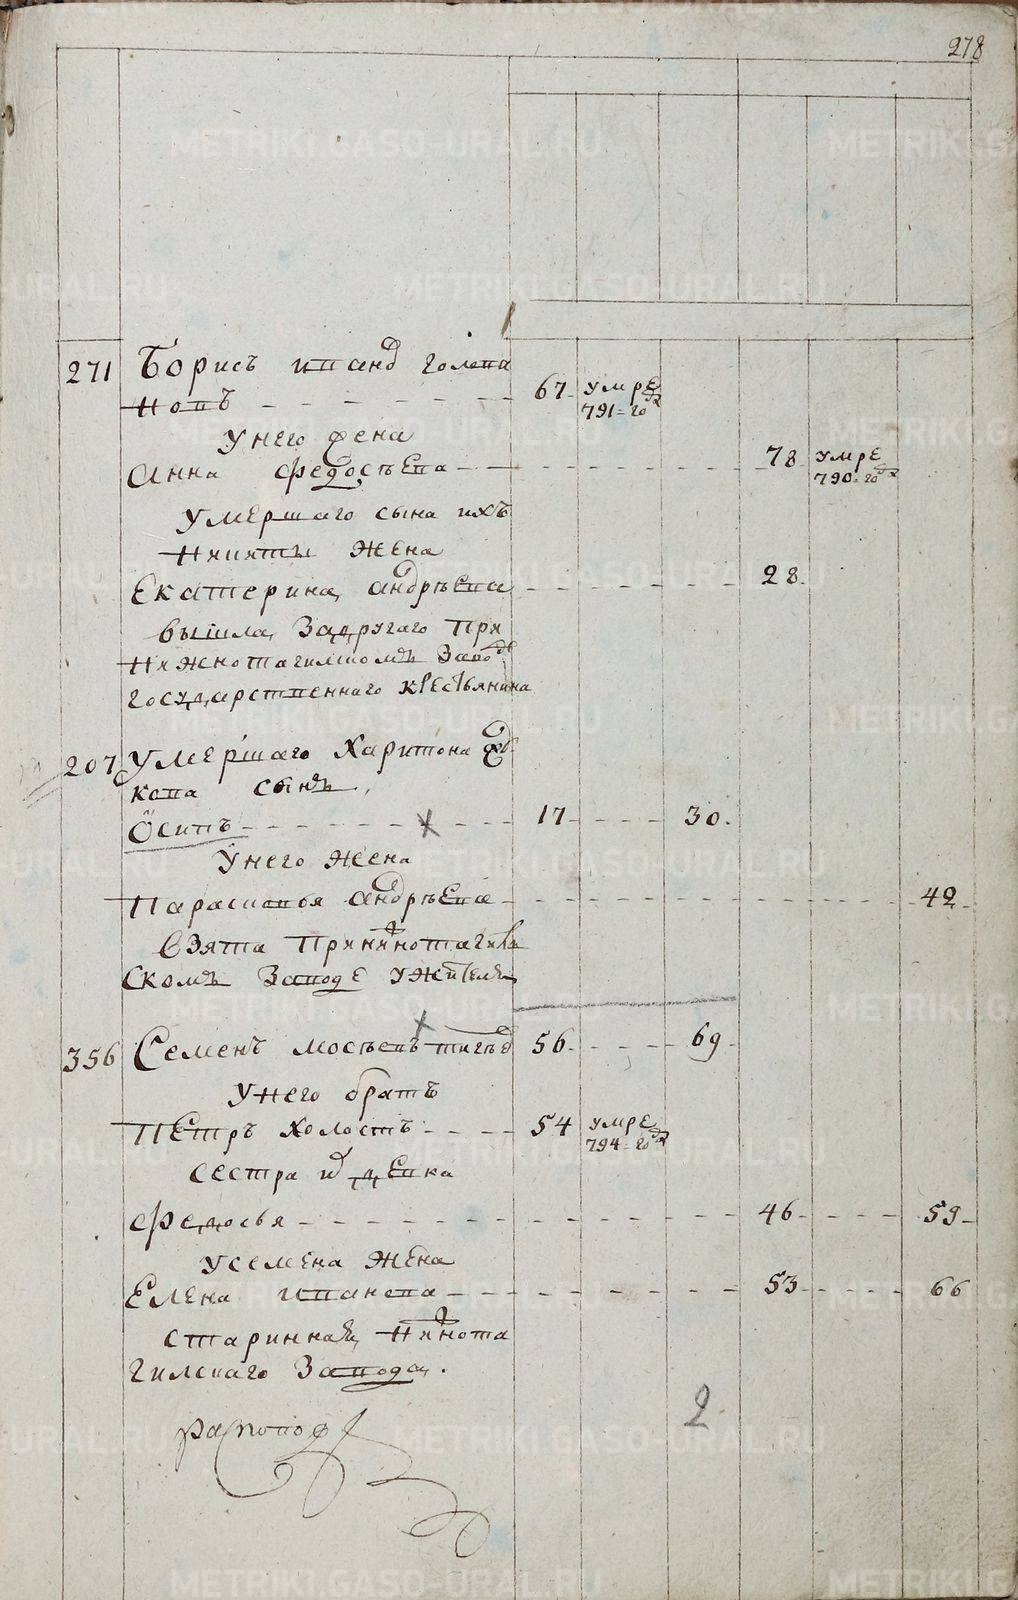 278
271 Борисъ ивановъ голова
новъ 67 умре
791=го
у него жена
Анна федосѣева 78 умре
790=го
умершаго сына ихъ
никиты жена
Екатерина андрѣева 28
вышла задругаго при
нижнотагилскомъ заводѣ
государственнаго крестьянина
207 умершаго харитона
кова сынъ
Осипъ 17 30
унего жена
парасковья андрѣева 42
взята принижнотагил
скомъ заводе ужителя
356 Семенъ мосѣевъ 56 69
унего братъ
петръ холостъ 54 умре
794=го
сестра девка
федосья 46 59
усемена жена
Елена иванова 53 66
старинная нижнота
гилскаго завода.
2
METRIKI.GASO-URAL.RU